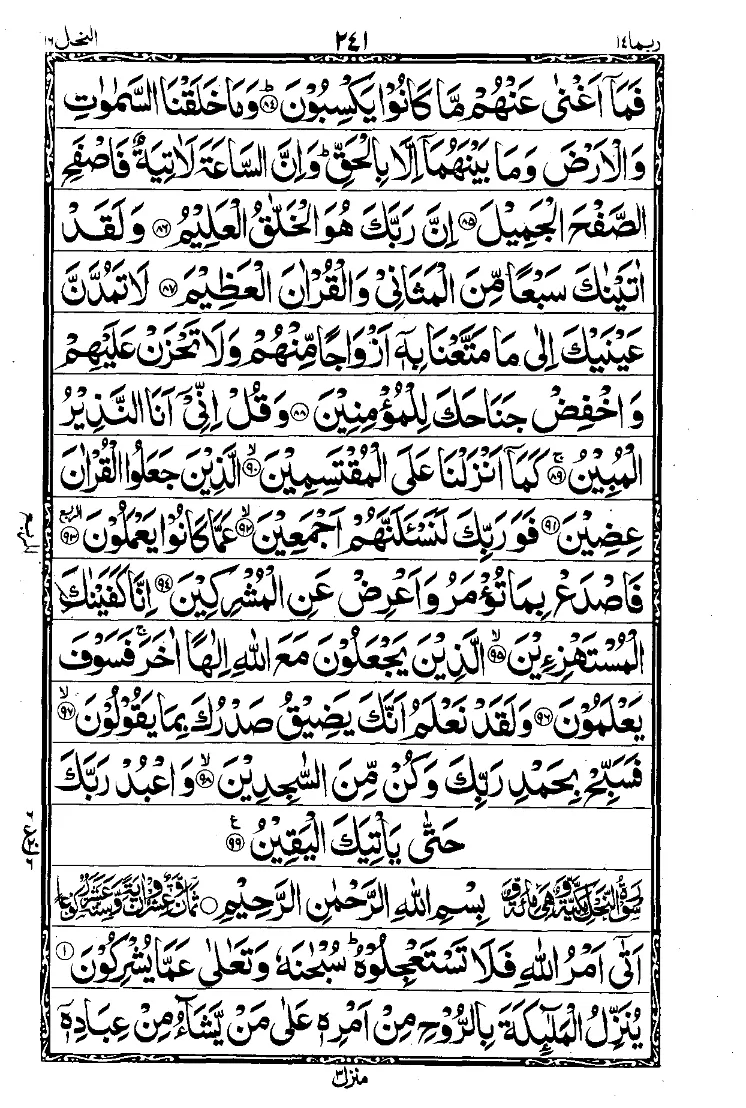 ربما ١٤
٢٤١
النحل ١٦
فَمَآ اَغْنٰى عَنْهُمْ مَّا كَانُوْا يَكْسِبُوْنَ ﴿٨٤﴾ؕ وَمَا خَلَقْنَا السَّمٰوٰتِ
وَالْاَرْضَ وَمَا بَيْنَهُمَآ اِلَّا بِالْحَقِّؕ وَاِنَّ السَّاعَةَ لَاٰتِيَةٌ فَاصْفَحِ
الصَّفْحَ الْجَمِيْلَ ﴿٨٥﴾ اِنَّ رَبَّكَ هُوَ الْخَلّٰقُ الْعَلِيْمُ ﴿٨٦﴾ وَلَقَدْ
اٰتَيْنٰكَ سَبْعًا مِّنَ الْمَثَانِيْ وَالْقُرْاٰنَ الْعَظِيْمَ ﴿٨٧﴾ لَا تَمُدَّنَّ
عَيْنَيْكَ اِلٰى مَا مَتَّعْنَا بِهٖٓ اَزْوَاجًا مِّنْهُمْ وَلَا تَحْزَنْ عَلَيْهِمْ
وَاخْفِضْ جَنَاحَكَ لِلْمُؤْمِنِيْنَ ﴿٨٨﴾ وَقُلْ اِنِّيْٓ اَنَا النَّذِيْرُ
الْمُبِيْنُ ﴿٨٩﴾ۚ كَمَآ اَنْزَلْنَا عَلَى الْمُقْتَسِمِيْنَ ﴿٩٠﴾ۙ الَّذِيْنَ جَعَلُوا الْقُرْاٰنَ
عِضِيْنَ ﴿٩١﴾ فَوَرَبِّكَ لَنَسْـَٔلَنَّهُمْ اَجْمَعِيْنَ ﴿٩٢﴾ۙ عَمَّا كَانُوْا يَعْمَلُوْنَ ﴿٩٣﴾
فَاصْدَعْ بِمَا تُؤْمَرُ وَاَعْرِضْ عَنِ الْمُشْرِكِيْنَ ﴿٩٤﴾ اِنَّا كَفَيْنٰكَ
الْمُسْتَهْزِءِيْنَ ﴿٩٥﴾ۙ الَّذِيْنَ يَجْعَلُوْنَ مَعَ اللّٰهِ اِلٰهًا اٰخَرَۚ فَسَوْفَ
يَعْلَمُوْنَ ﴿٩٦﴾ وَلَقَدْ نَعْلَمُ اَنَّكَ يَضِيْقُ صَدْرُكَ بِمَا يَقُوْلُوْنَ ﴿٩٧﴾ۙ
فَسَبِّحْ بِحَمْدِ رَبِّكَ وَكُنْ مِّنَ السّٰجِدِيْنَ ﴿٩٨﴾ۙ وَاعْبُدْ رَبَّكَ
حَتّٰى يَاْتِيَكَ الْيَقِيْنُ ﴿٩٩﴾ ع
سورة النحل مكية وهي مائة و بِسْمِ اللّٰهِ الرَّحْمٰنِ الرَّحِيْمِ ثمان وعشرون اية وستة عشر ركوعا
اَتٰٓى اَمْرُ اللّٰهِ فَلَا تَسْتَعْجِلُوْهُؕ سُبْحٰنَهٗ وَتَعٰلٰى عَمَّا يُشْرِكُوْنَ ﴿١﴾
يُنَزِّلُ الْمَلٰٓئِكَةَ بِالرُّوْحِ مِنْ اَمْرِهٖ عَلٰى مَنْ يَّشَآءُ مِنْ عِبَادِهٖٓ
منزل ٣